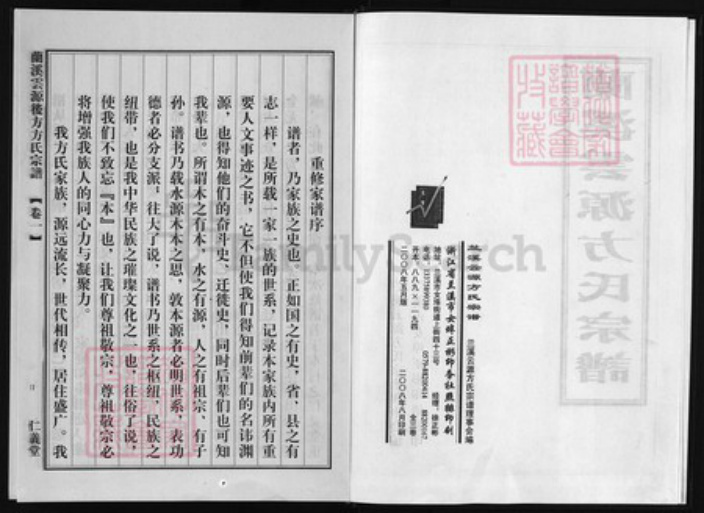 重修家谱序
谱者，乃家族之史也，正如国之有史，省、县之有
志一样，是所载一家一族的世系，记录本家族内所有重
要人文事迹之书，它不但使我们得知前辈们的名讳渊
源，也得知他们的奋斗史、迁徙史，同时后辈们也可知
我辈也。所谓木之有本，水之有源，人之有祖宗、有子
孙。谱书乃载水源木本之思，敦本源者必明世系，表功
德者必分支派；往大了说，谱书乃世系之枢纽，民族之
纽带，也是我中华民族之璀璨文化之一也，往俗了说，
使我们不致忘『本』也，让我们尊祖敬宗，尊祖敬宗必
将增强我族人的同心力与凝聚力。
我方氏家族，源远流长，世代相传，居住盛广。我
蘭溪雲源後方方氏宗譜
【卷一】
仁義堂
兰溪云源方氏宗谱
兰溪云源方氏宗谱理事会编
浙江省兰溪市女埠正彬印务社 承印
经理：徐正彬
地址：兰溪市女埠街道上街四十三号
电话：13375899380 0579-88200414 88200347
开本：八八九×一一九四
全三卷
二〇〇八年五月版
二〇〇八年八月印刷
蘭溪雲源方氏宗譜
FamilySearch